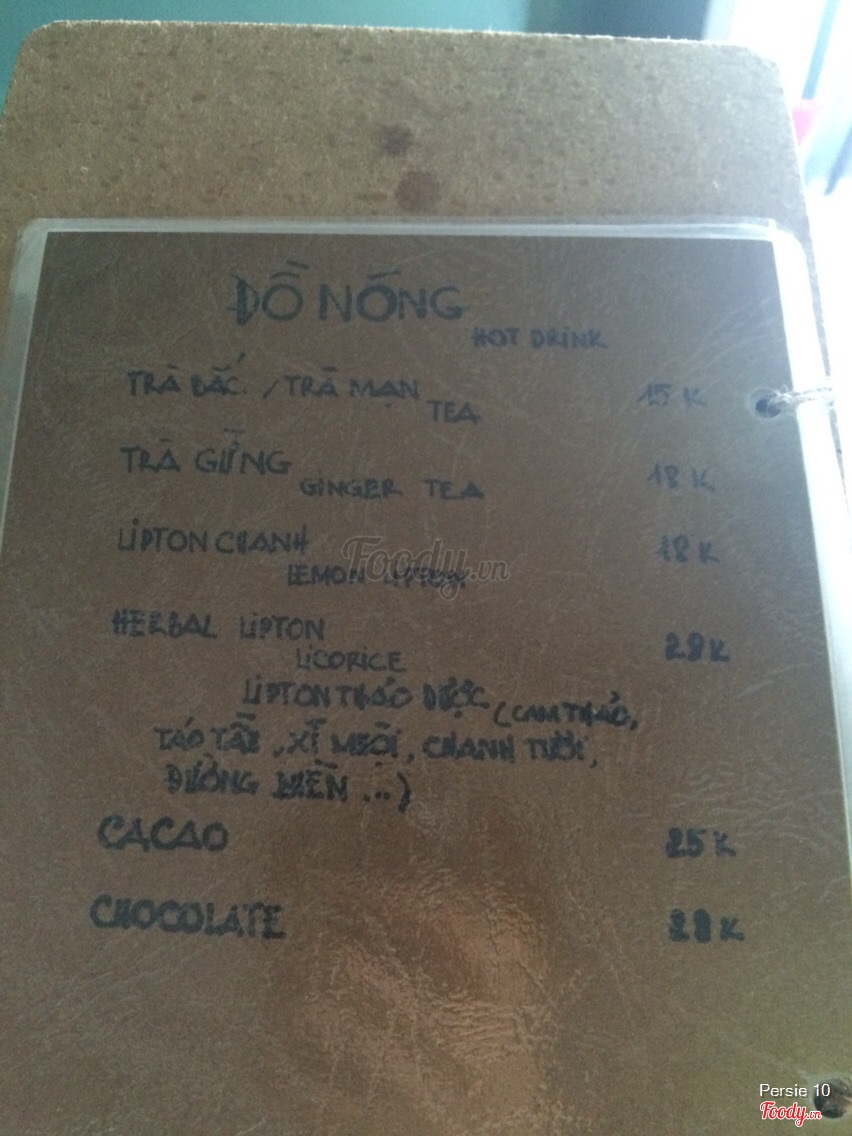 ĐỒ NÓNG
HOT DRINK
TRÀ BẮC / TRÀ MẠN 15 K
TEA
TRÀ GỪNG 18 K
GINGER TEA
LIPTON CHANH 18 K
LEMON LIPTON
Foody.vn
HERBAL LIPTON 28 K
LICORICE
LIPTON THẢO DƯỢC (CAM THẢO,
TÁO TÀU, XÍ MUỘI, CHANH TƯƠI,
ĐƯỜNG PHÈN ...)
CACAO 25 K
CHOCOLATE 28 K
Persie 10
Foody.vn